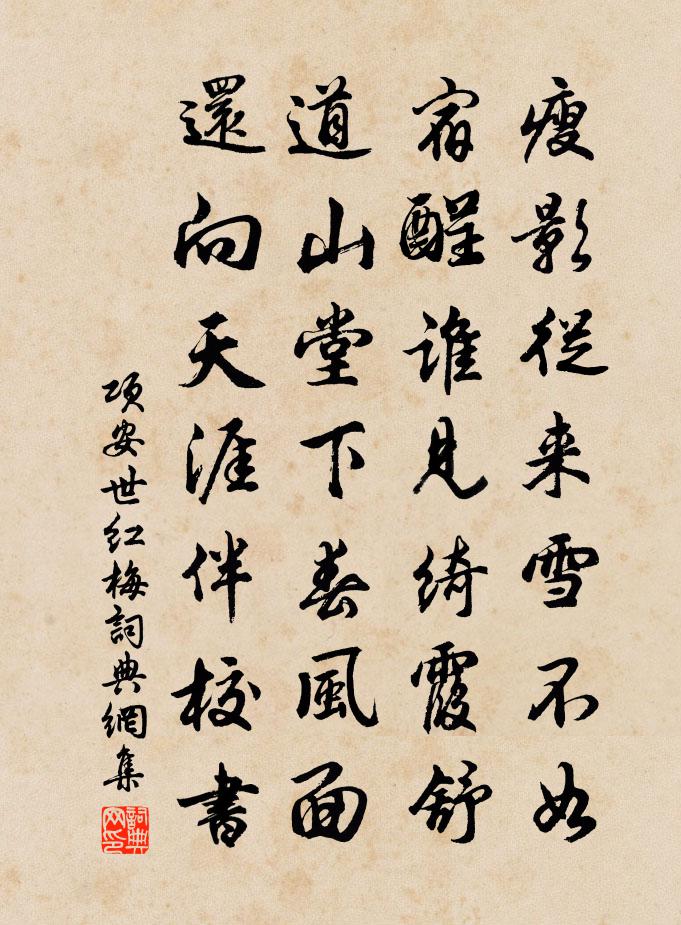 瘦影從来雪不如
宿醒誰見綺霞舒
道山堂下春風面
還向天涯伴校書
项安世红梅詞典網集
詞典网印